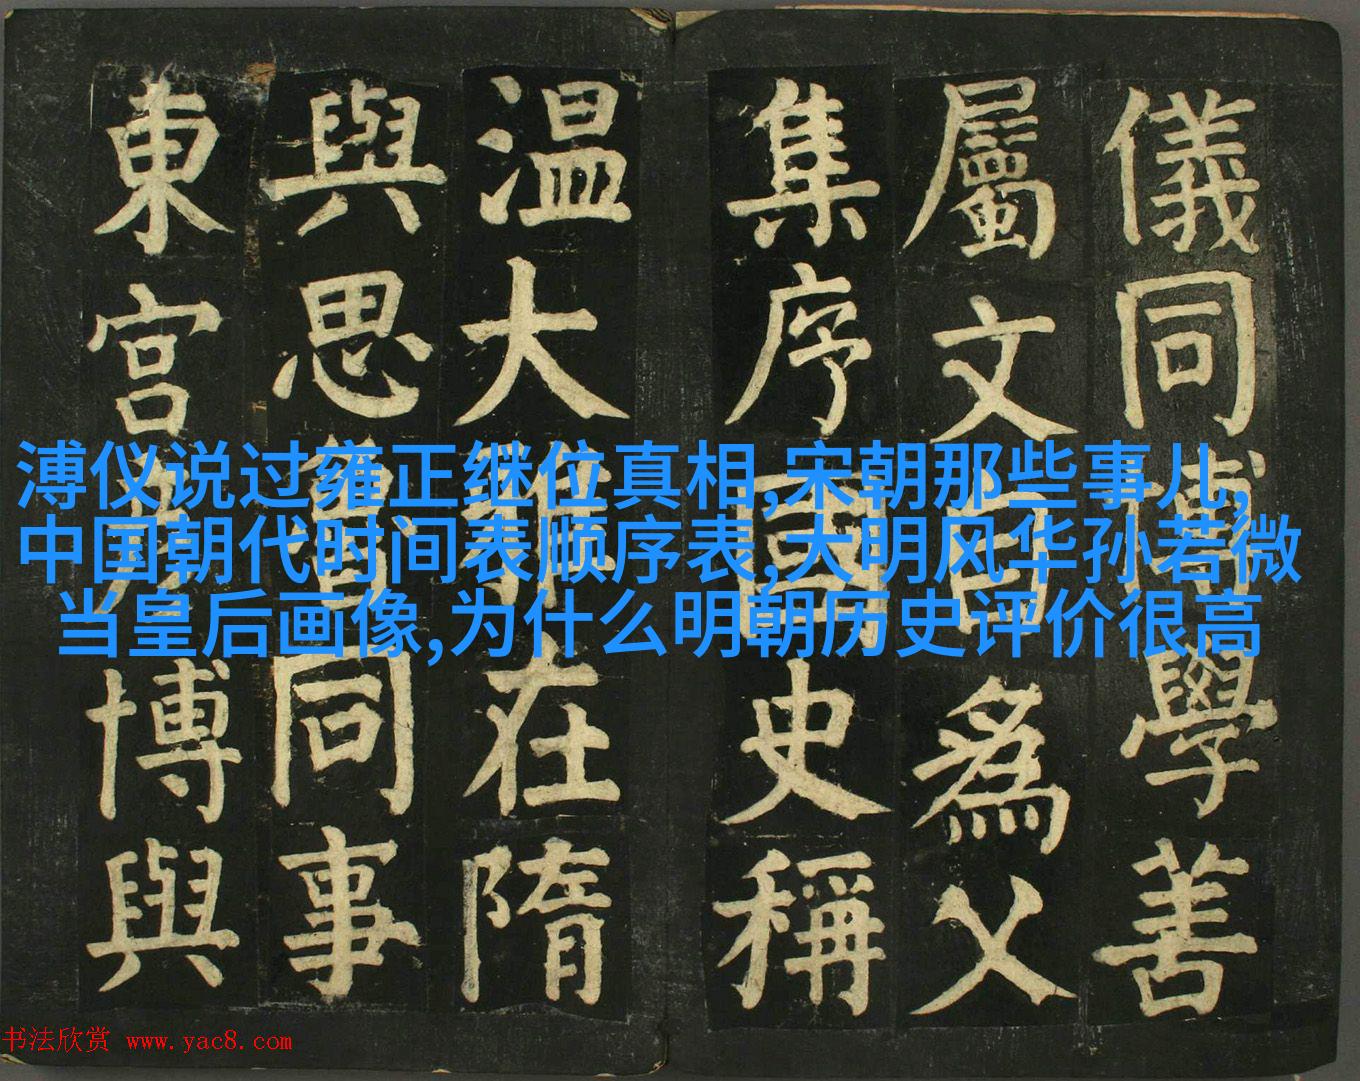 儀同博學善
屬文爲父
集序國史稱
温大雅在隋
與思同事
東宮博與
溥仪说过雍正继位真相,宋朝那些事儿,
中国朝代时间表顺序表,大明风华孙若微
当皇后画像,为什么明朝历史评价很高
书法欣赏 www.yac8.com